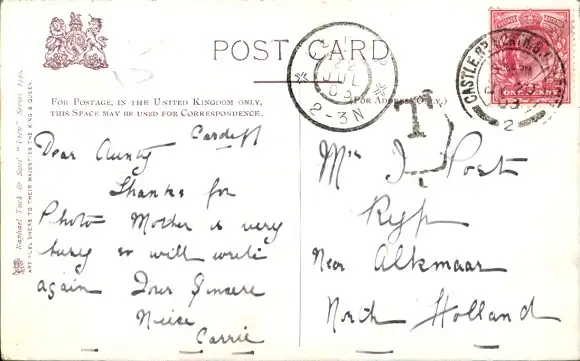 POST CARD
FOR POSTAGE, IN THE UNITED KINGDOM ONLY,
THIS SPACE MAY BE USED FOR CORRESPONDENCE.
(FOR ADDRESS ONLY.)
Cardiff
Dear Aunty
Thanks for
Photo Mother is very
busy so will write
again Your Sincere
Niece
Carrie
Mrs J Poet
Ryp
Near Alkmaar
North Holland
T
JUL
03
2-3N
CASTLE RD
2
ONE PENNY
Raphael Tuck & Sons' "View" Series
ART PUBLISHERS TO THEIR MAJESTIES THE KING & QUEEN.